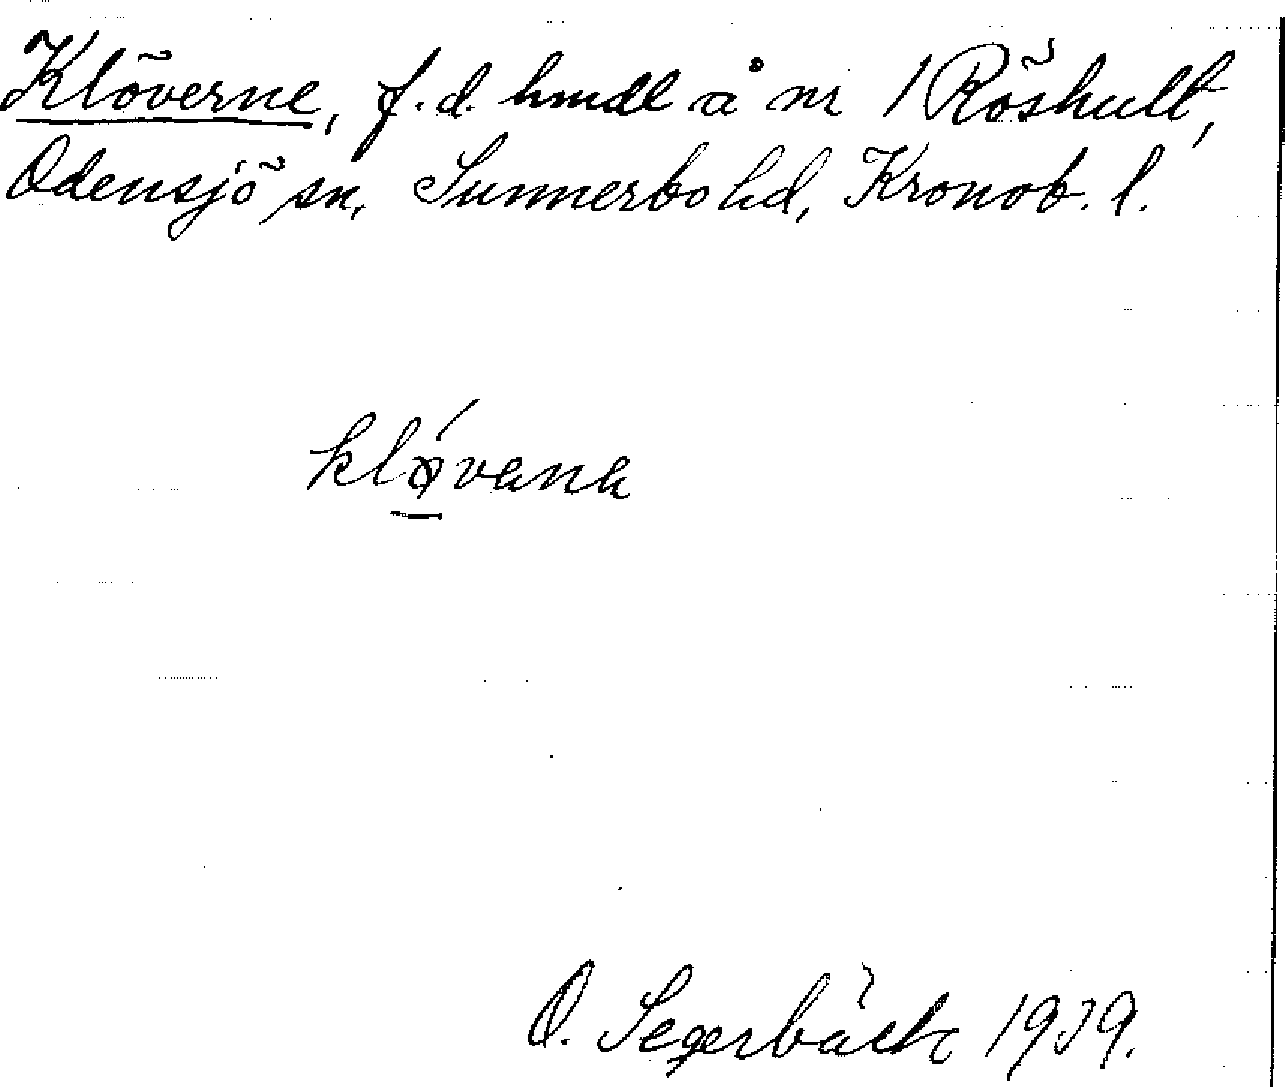 Klöverne, f.d. hmdl å nr 1 Röshult,
Odensjö sn, Sunnerbo hd, Kronob. l.
O. Segerbäck 1939.